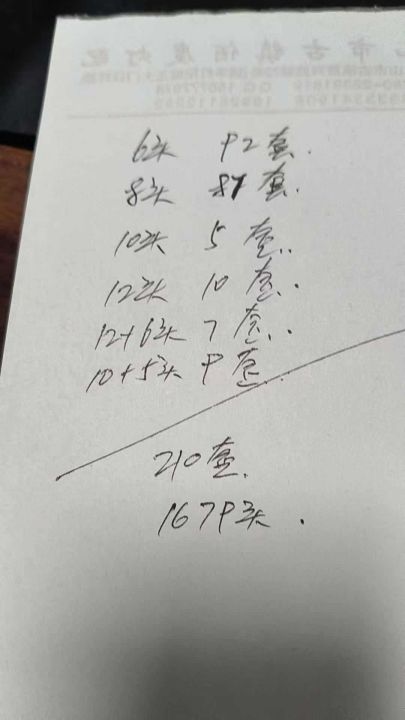 市古镇佰度灯配
6头 92套.
8头 87套.
10头 5套.
12头 10套.
12+6头 7套.
10+5头 9套.
210套.
1679头.